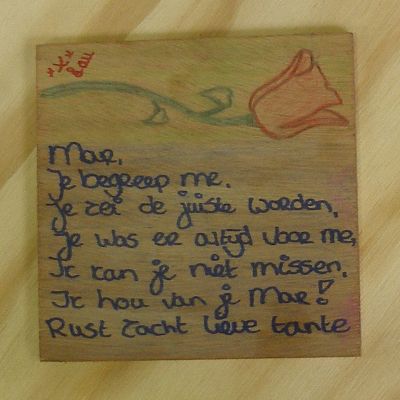 *x* Lau
Mar,
Je begreep me.
Je zei de juiste woorden,
Je was er altijd voor me,
Ik kan je niet missen,
Ik hou van je Mar!
Rust zacht lieve tante